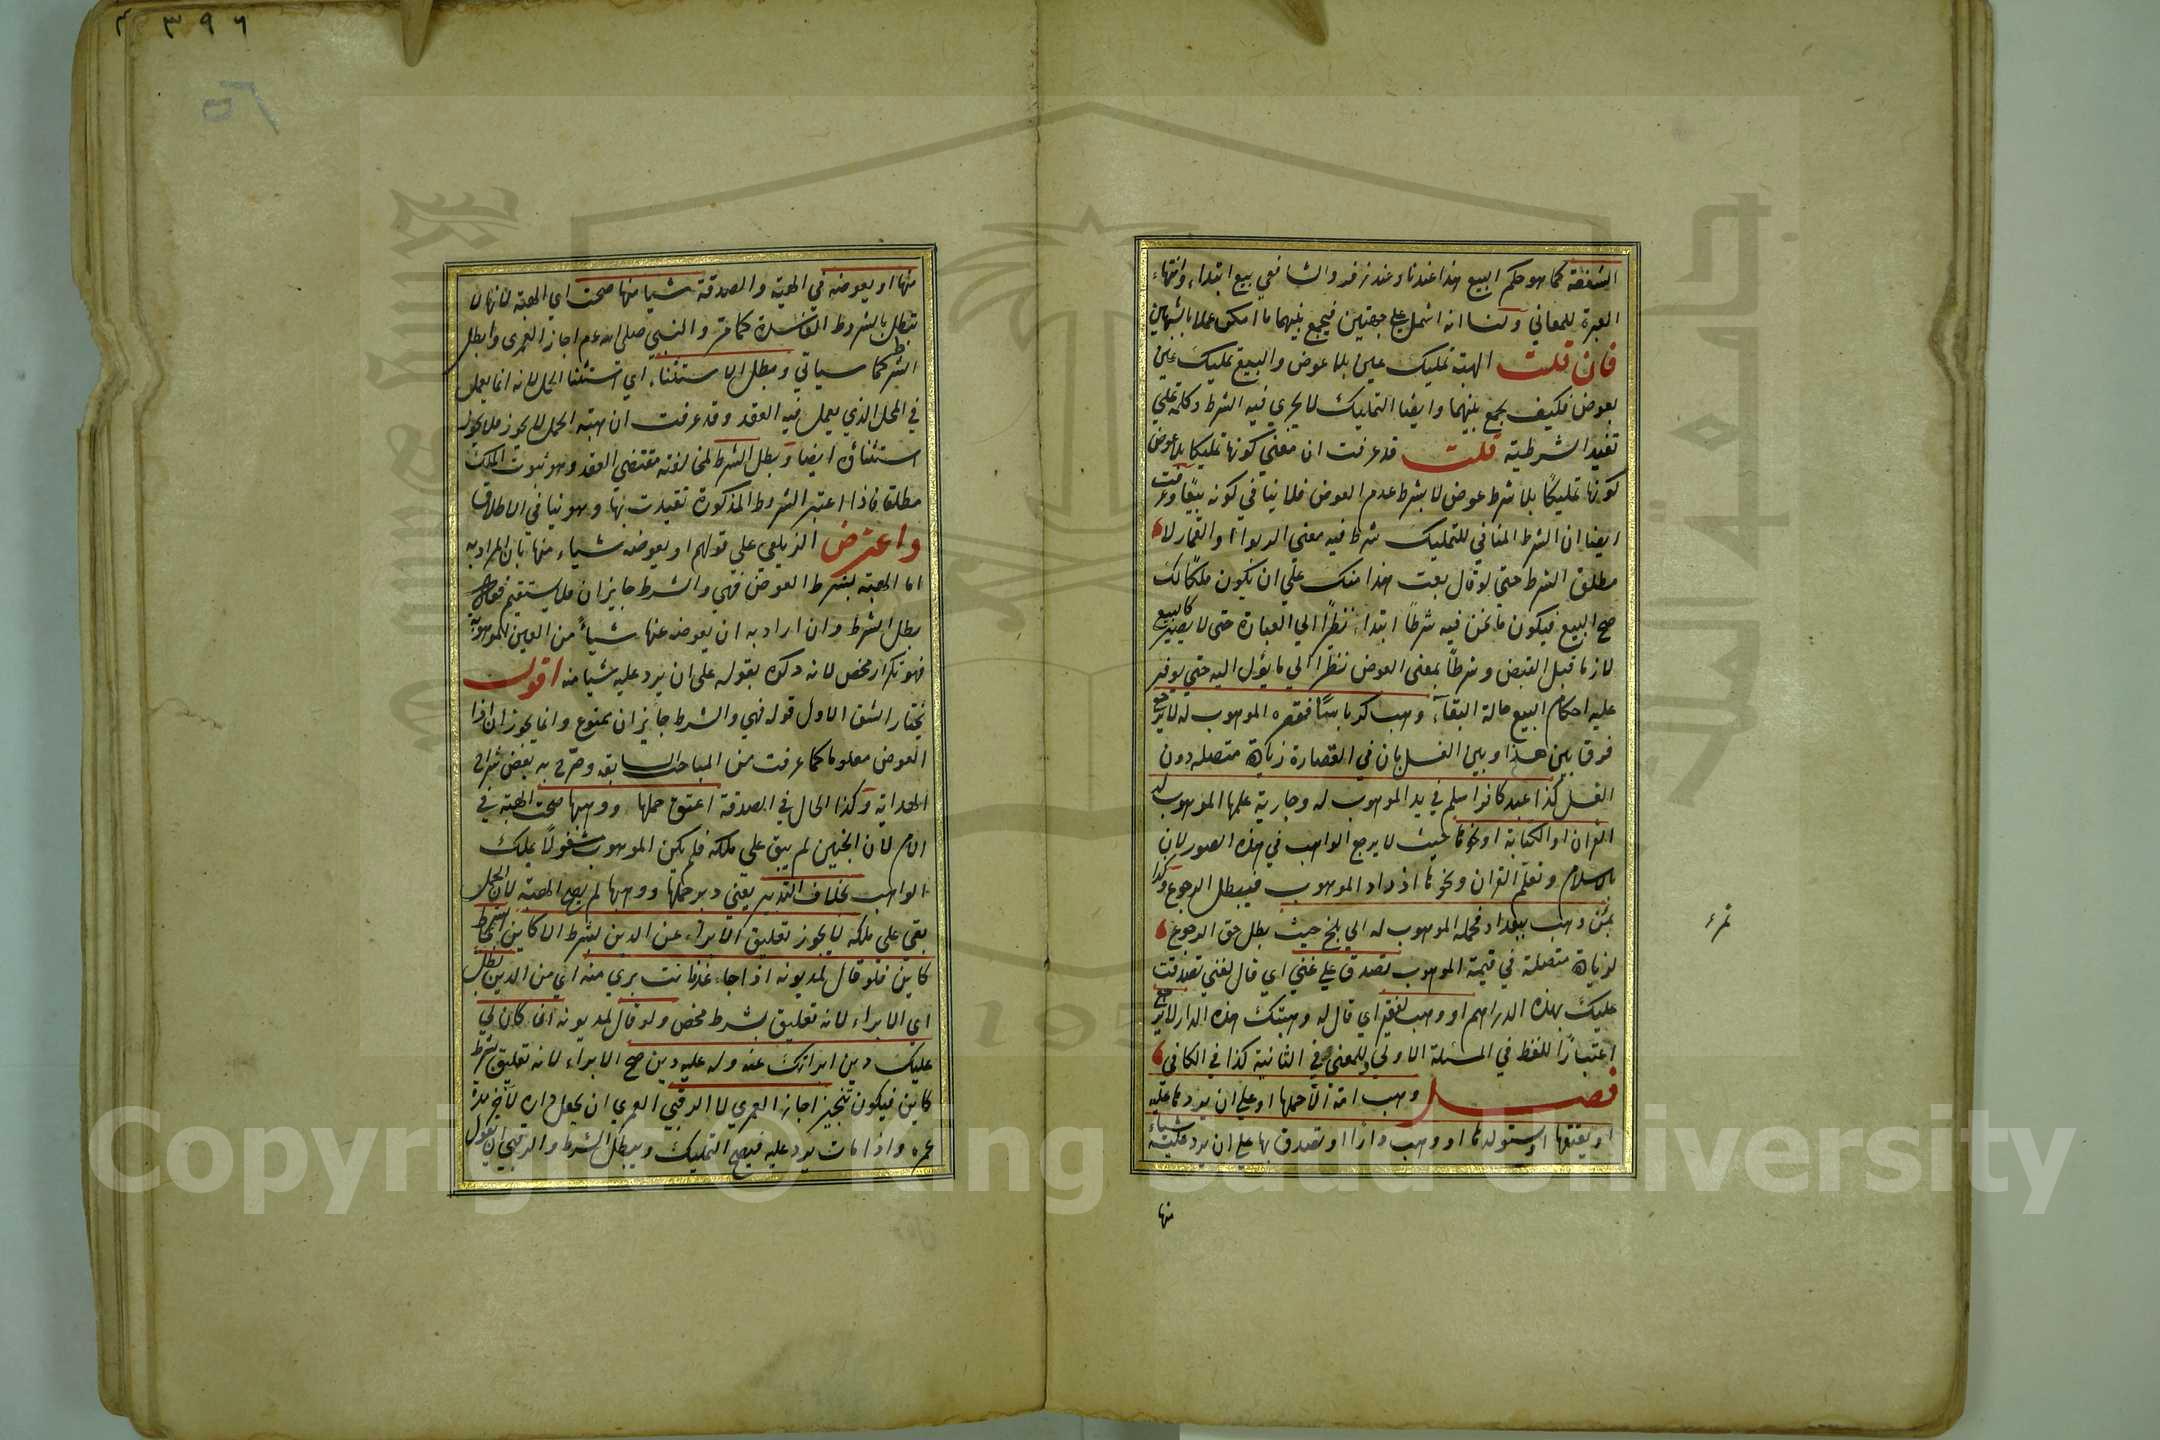 الشفعة كما هو حكم البيع هذا عندنا وعند زفر والشافعي بيع ابتداء وانتهاء
العبرة للمعاني ولنا انه اشتمل علي جهتين فيجمع بينهما ما امكن عملا بالشبهين
فان قلت الهبة تمليك عين بلا عوض والبيع تمليك عين
بعوض فكيف يجمع بينهما وايضا التمليك لا يجري فيه الشرط وكلمة علي
تفيد الشرطية قلت قد عرفت ان معني كونها تمليكا بلا عوض
كونها تمليكًا بلا شرط عوض لا بشرط عدم العوض فلا ينافي كونه بيعًا وعرفت
ايضا ان الشرط المنافي للتمليك شرط فيه معني الربوا او القمار لا
مطلق الشرط حتي لو قال بعت هذا منك علي ان يكون ملكًا لك
صح البيع فيكون ما نحن فيه شرطًا ابتداء نظرًا الي العبارة حتى لا يصير كالبيع
لازما قبل القبض وشرطًا بمعنى العوض نظرا الي ما يؤل اليه حتي يوفر
عليه احكام البيع حالة البقاء وهب كرباسًا فقصره الموهوب له لا يرجع
فرق بين هذا وبين الغسل بان في القصارة زيادة متصله دون
الغسل كذا عبد كافر اسلم في يد الموهوب له وجارية علمها الموهوب له
القران او الكتابة او نحوها حيث لا يرجع الواهب في هذه الصور لان
بالاسلام وتعلم القران ونحوها ازداد الموهوب فيبطل الرجوع وكذا
تمر وهب ببغداد فحمله الموهوب له الي بلخ حيث بطل حق الرجوع
لزيادة متصلة في قيمة الموهوب تصدق علي غني اي قال لغني تصدقت
عليك بهذه الدراهم او وهب لفقير اي قال له وهبتك هذه الدار لا يرجع
اعتبارًا للفظ في المسئلة الاولي وللمعني في الثانية كذا في الكافي
فصل وهب امة الا حملها او علي ان يردها عليه
او يعتقها او يستولدها او وهب دارًا او تصدق بها علي ان يرد عليه شيئا
منها
منها او يعوضه في الهبة والصدقة شيا منها صحت اي الهبة لانها لا
تبطل بالشروط الفاسدة كما مر والنبي صلى الله عم اجاز العمرى وابطل
الشرط كما سياتي وبطل الاستثناء اي استثنا الحمل لانه انما يعمل
في المحل الذي يعمل فيه العقد وقد عرفت ان هبة الحمل لا يجوز فلا يجوز
استثناؤه ايضا وبطل الشرط لمخالفته مقتضي العقد وهو ثبوت الملك
مطلقا فاذا اعتبر الشروط المذكورة تقيدت بها وهو ينافي الاطلاق
واعترض الزيلعي على قولهم او يعوضه شياء منها بان المراد به
اما الهبة بشرط العوض فهي والشرط جايزان فلا يستقيم قوله
بطل الشرط وان اراد به ان يعوضه عنها شياء من العين الموهوبة
فهو تكرار محض لانه ذكره بقوله على ان يرد عليه شيا منه اقول
نختار الشق الاول قوله فهي والشرط جايزان ممنوع وانما يجوزان اذا
العوض معلوما كما عرفت من المباحث السابقه وصرح به بعض شراح
الهداية وكذا الحال في الصدقة اعتق حملها ووهبها صحت الهبة في
الام لان الجنين لم يبق علي ملكه فلم يكن الموهوب مشغولًا بملك
الواهب بخلاف التدبير يعني دبر حملها ووهبها لم يصح الهبة لان الحمل
بقي علي ملكه لا يجوز تعليق الابراء عن الدين بشرط الا كاين
كاين فلو قال لمديونه اذا جاء غد فانت بري منه اي من الدين بطل
اي الابراء لانه تعليق بشرط محض ولو قال لمديونه ان كان لي
عليك دين ابراتك عنه وله عليه دين صح الابراء لانه تعليق بشرط
كاين فيكون تنجيز اجاز العمري لا الرقبي العمري ان يجعل داره لاخر مدة
عمره واذا مات يرد عليه فيصح التمليك ويبطل الشرط والرقبي ان يقول
٣٩٦
Copyright © King Saud University